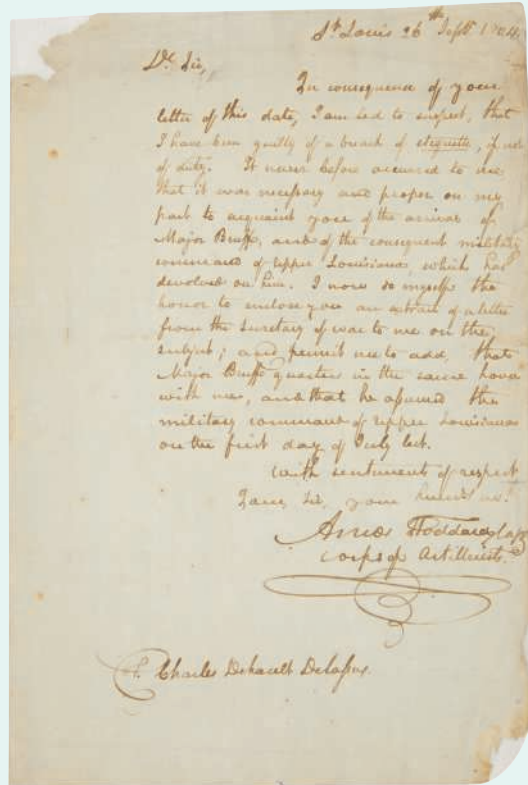 St Louis 26th Sept 1804
Dr Sir,
In consequence of your
letter of this date, I am led to suspect, that
I have been guilty of a breach of etiquette, if not
of duty. It never before occurred to me
that it was necessary and proper on my
part to acquaint you of the arrival of
Major Bruff, and of the consequent military
command of upper Louisiana, which has
devolved on him. I now do myself the
honor to enclose you an extract of a letter
from the Secretary of war to me on the
subject; and permit me to add, that
Major Bruff quarters in the same house
with me, and that he assumed the
military command of upper Louisiana
on the first day of July last.
With sentiment of respect
I am, Sir, your humble
Amos Stoddard, Capt
Corps of Artillerists.
Charles Dehault Delassus